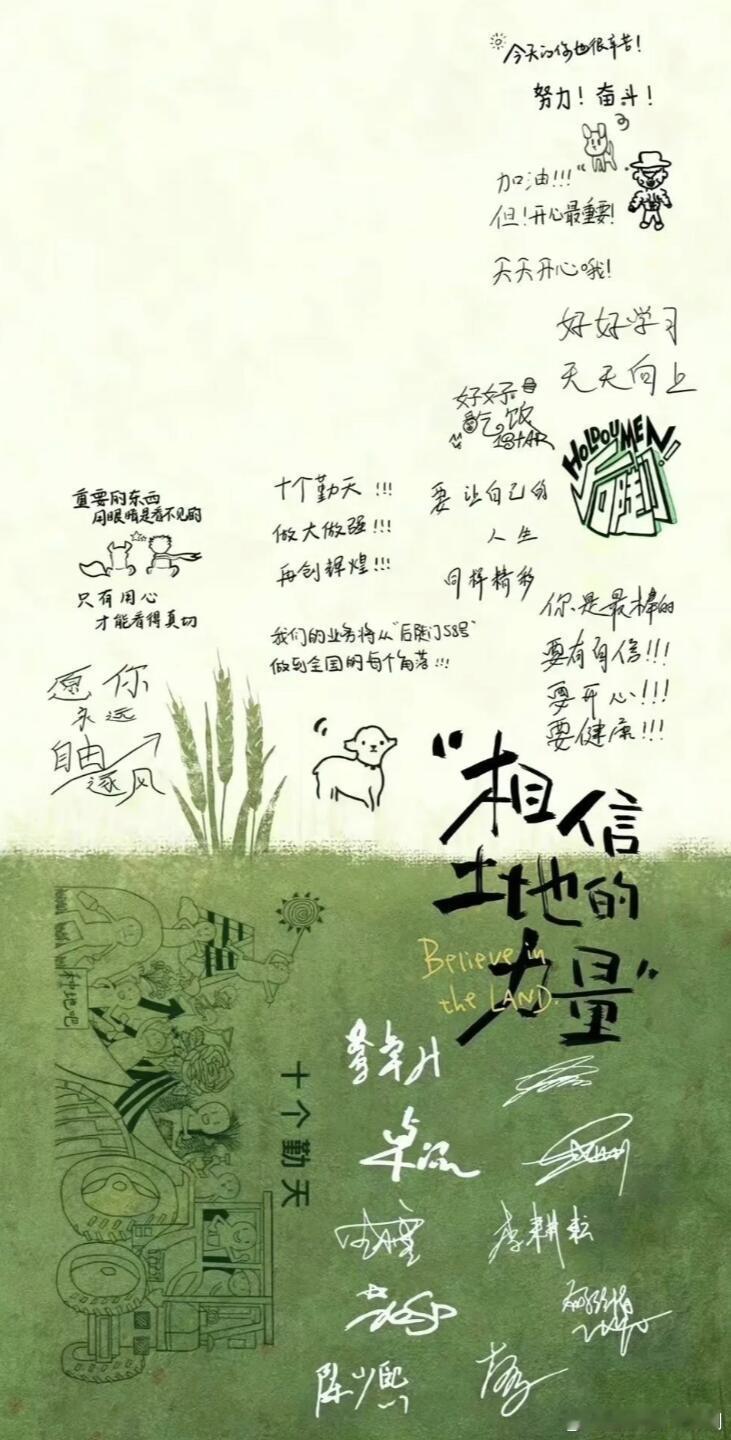 今天的你也很辛苦!
努力! 奋斗!
加油!!!
但!开心最重要!
天天开心哦!
好好学习
天天向上
好好
吃饭
1STAR
HOLDOUMEN
后陡门
重要的东西
用眼睛是看不见的
只有用心
才能看得真切
十个勤天 !!!
做大做强!!!
再创辉煌!!!
我们的业务将从“后陡门58号”
做到全国的每个角落!!!
要让自己的
人生
同样精彩
你是最棒的
要有自信!!!
要开心!!!
要健康!!!
愿你
永远
自由
逐风
“相信
土地的
力量”
Believe in
the LAND.
种地吧
十个勤天
卓沅
李耕耘
陈少熙